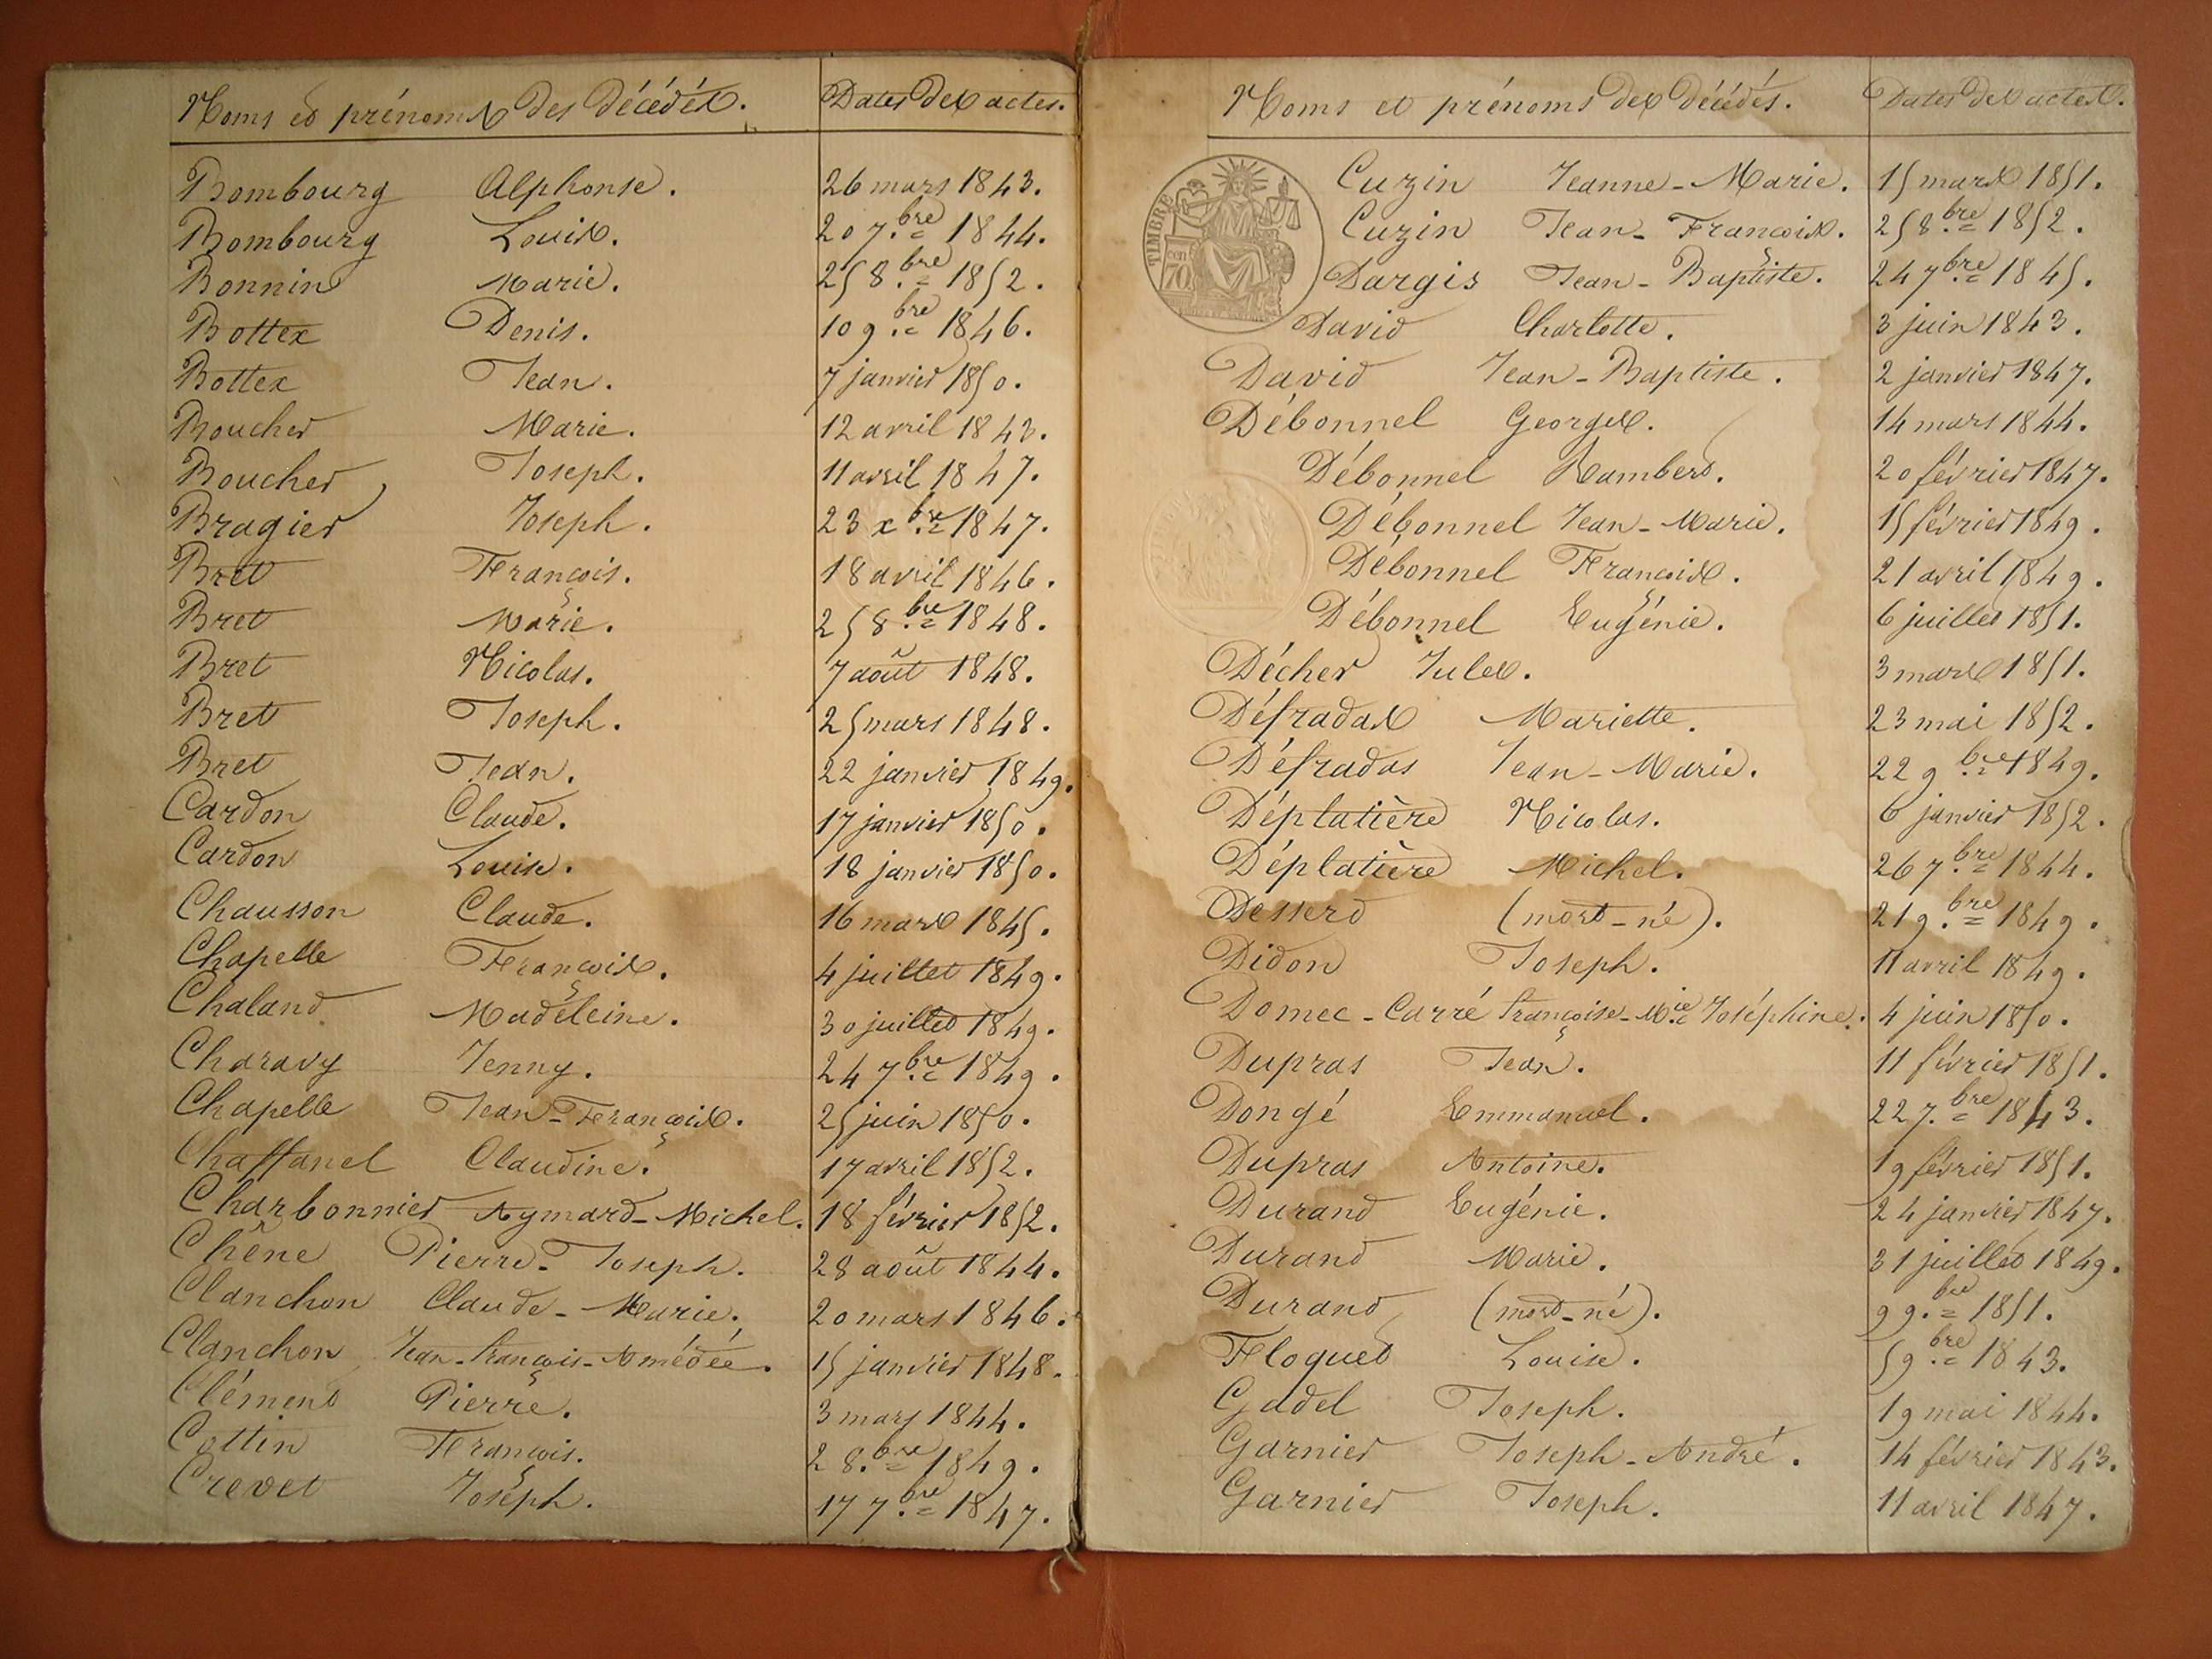 Noms et prénoms des décédés. Dates des actes.
Bombourg Alphonse. 26 mars 1843.
Bombourg Louis. 20 7.bre 1844.
Bonnin Marie. 25 8.bre 1852.
Bottex Denis. 10 9.bre 1846.
Bottex Jean. 7 janvier 1850.
Boucher Marie. 12 avril 1843.
Boucher Joseph. 11 avril 1847.
Bragier Joseph. 23 xbre 1847.
Bret François. 18 avril 1846.
Bret Marie. 25 8.bre 1848.
Bret Nicolas. 7 août 1848.
Bret Joseph. 25 mars 1848.
Bret Jean. 22 janvier 1849.
Cardon Claude. 17 janvier 1850.
Cardon Louise. 18 janvier 1850.
Chausson Claude. 16 mars 1845.
Chapelle François. 4 juillet 1849.
Chaland Madeleine. 30 juillet 1849.
Charavy Jenny. 24 7.bre 1849.
Chapelle Jean-François. 25 juin 1850.
Chaffanel Claudine. 17 avril 1852.
Charbonnier Aymard-Michel. 18 février 1852.
Chêne Pierre-Joseph. 28 août 1844.
Clanchon Claude-Marie. 20 mars 1846.
Clanchon Jean-françois-Amédée. 15 janvier 1848.
Clément Pierre. 3 mars 1844.
Cottin François. 2 8.bre 1849.
Crevet Joseph. 17 7.bre 1847.
Noms et prénoms des décédés. Dates des actes.
TIMBRE
70
Cuzin Jeanne-Marie. 15 mars 1851.
Cuzin Jean-François. 25 8.bre 1852.
Dargis Jean-Baptiste. 24 7bre 1845.
David Charlotte. 3 juin 1843.
David Jean-Baptiste. 2 janvier 1847.
Débonnel Georges. 14 mars 1844.
Débonnel Rambert. 20 février 1847.
Débonnel Jean-Marie. 15 février 1849.
Débonnel François. 21 avril 1849.
Débonnel Eugénie. 6 juillet 1851.
Décher Jules. 3 mars 1851.
Défradas Mariette. 23 mai 1852.
Défradas Jean-Marie. 22 9bre 1849.
Déplatière Nicolas. 6 janvier 1852.
Déplatière Michel. 26 7.bre 1844.
Dessert (mort-né). 21 9.bre 1849.
Didon Joseph. 11 avril 1849.
Domec-Carré françoise-Mie Joséphine. 4 juin 1850.
Dupras Jean. 11 février 1851.
Dongé Emmanuel. 22 7.bre 1843.
Dupras Antoine. 19 février 1851.
Durand Eugénie. 24 janvier 1847.
Durand Marie. 31 juillet 1849.
Durand (mort-né). 9 9.bre 1851.
Floquet Louise. 5 9.bre 1843.
Gadel Joseph. 19 mai 1844.
Garnier Joseph-André. 14 février 1843.
Garnier Joseph. 11 avril 1847.